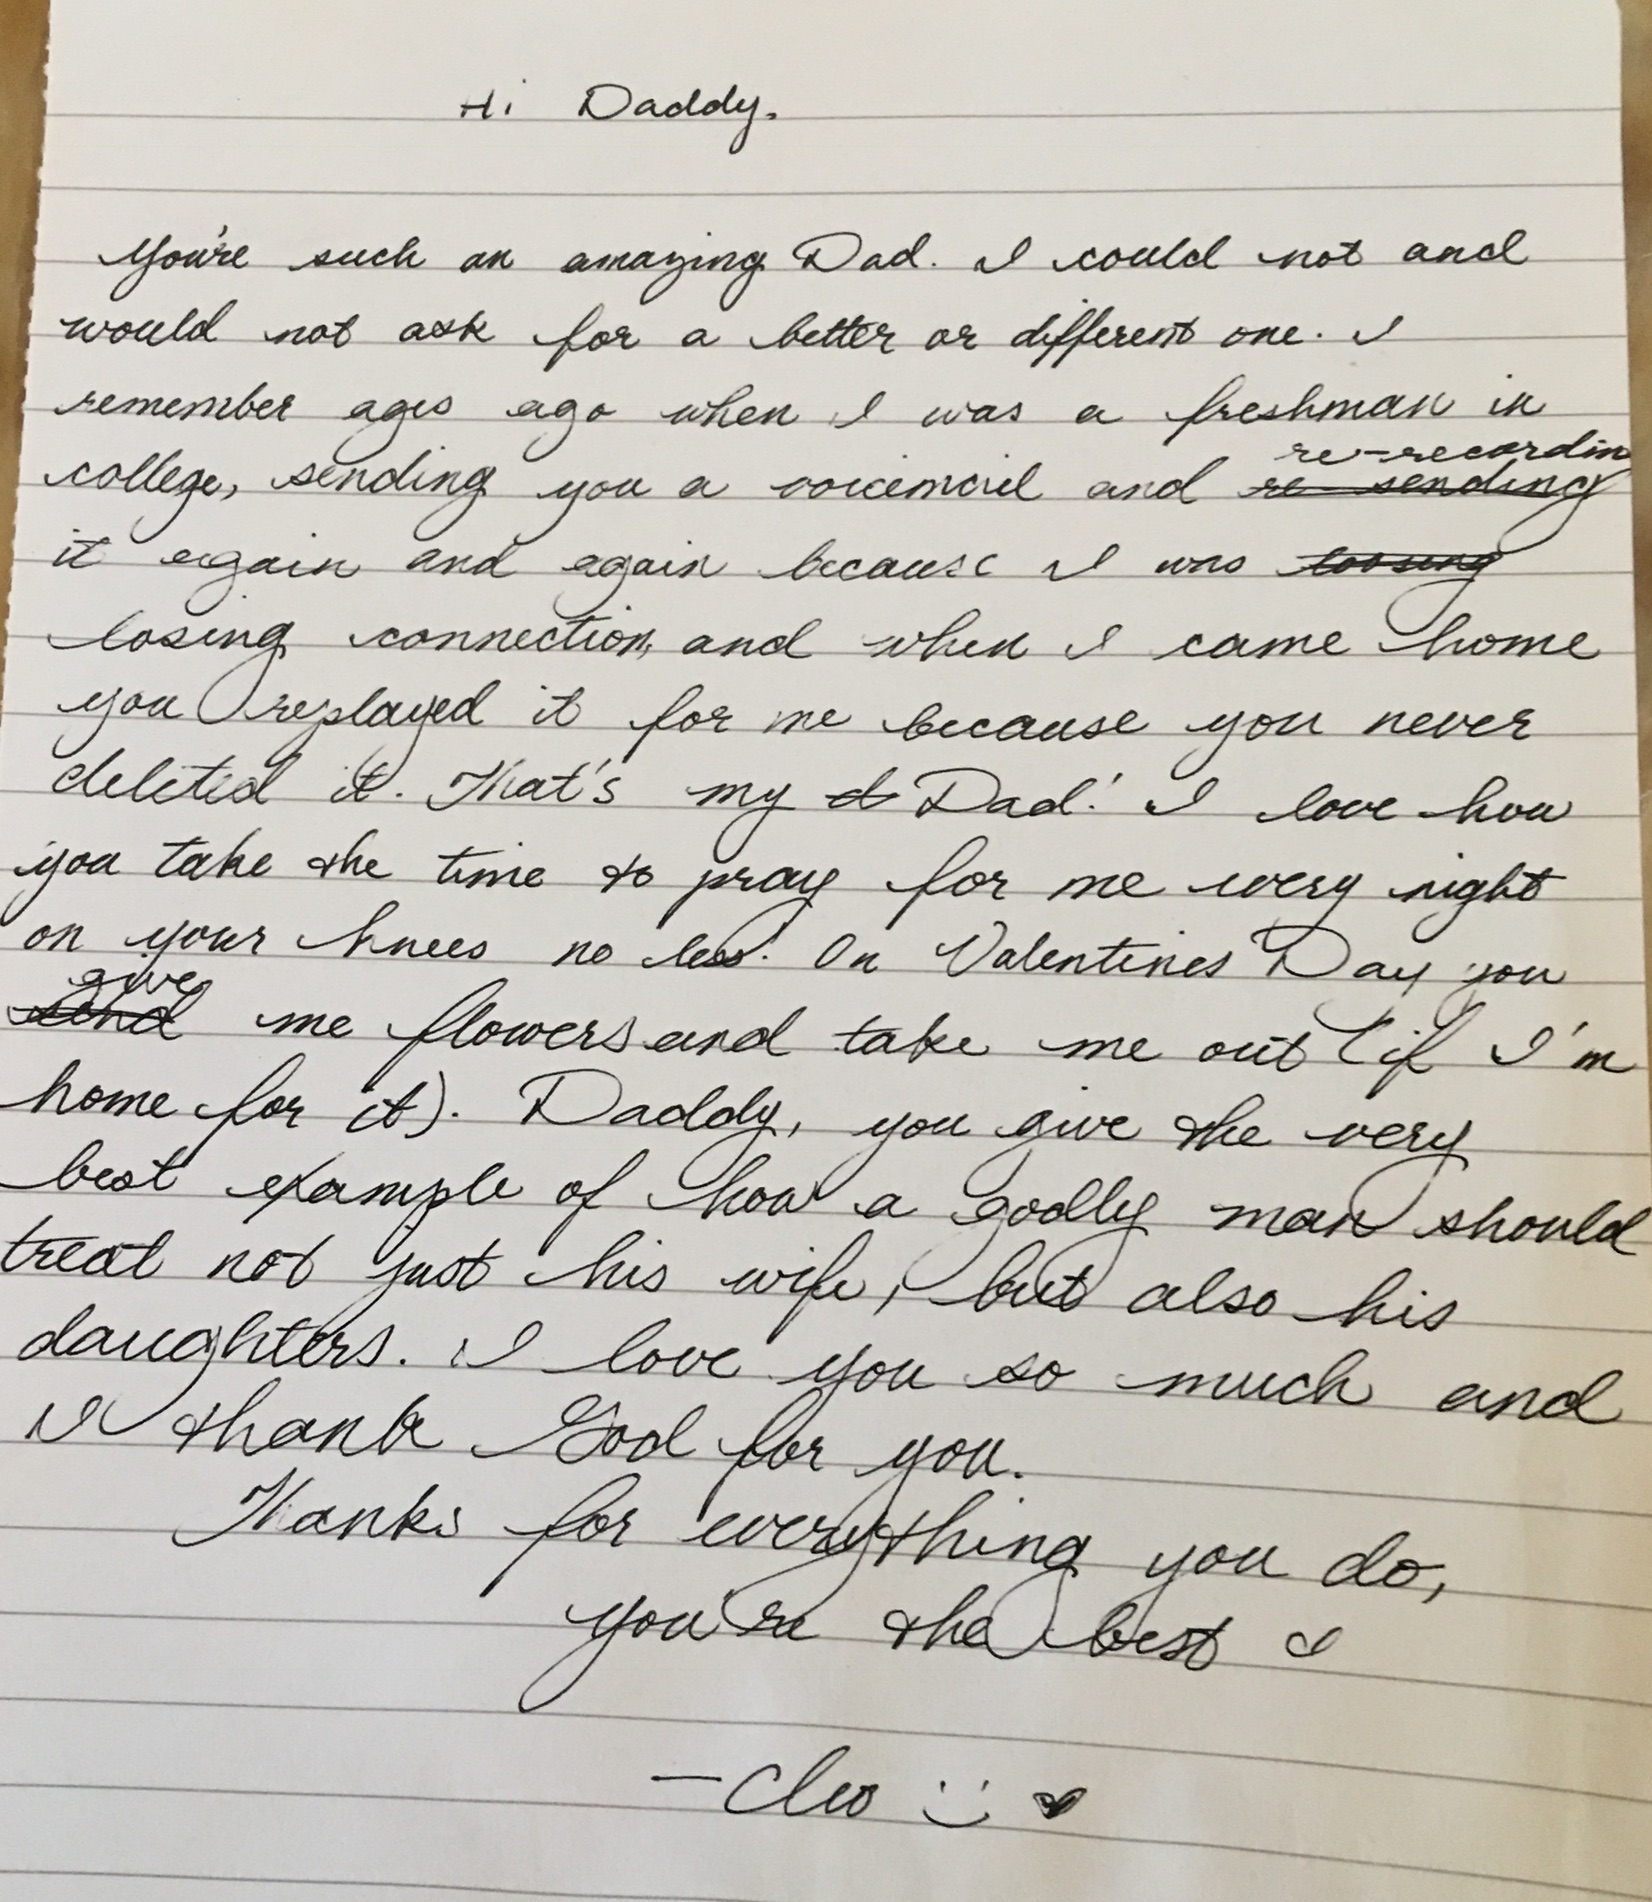 Hi Daddy,
You're such an amazing Dad. I could not and
would not ask for a better or different one. I
remember ages ago when I was a freshman in
college, sending you a voicemail and re-sending re-recording
it again and again because I was loosing
losing connection, and when I came home
you replayed it for me because you never
deleted it. That's my d Dad! I love how
you take the time to pray for me every night
on your knees no less! On Valentines Day you
send give me flowers and take me out (if I'm
home for it). Daddy, you give the very
best example of how a godly man should
treat not just his wife, but also his
daughters. I love you so much and
I thank God for you.
Thanks for everything you do,
you're the best
—Cleo :) ♥